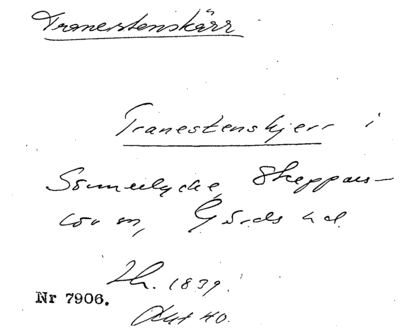 Tranestenskärr
Tranestenskjerr i
Sönnerlycke, Skeppars-
löv sn, Gärds hd.
1839.
Nr 7906.
Akt 40.